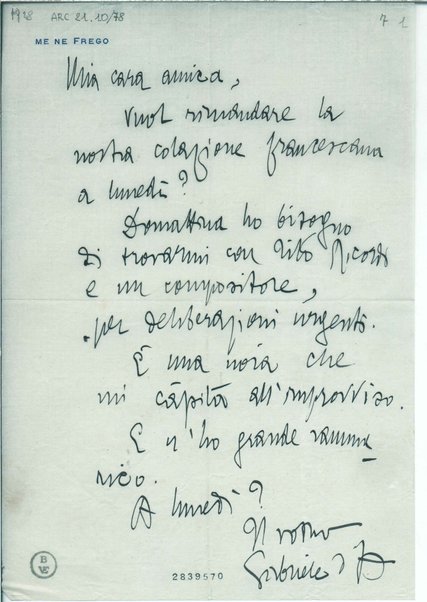 1918 ARC 21.10/78 7 1
ME NE FREGO
Mia cara amica,
vuol rimandare la
nostra colazione francescana
a lunedì?
Domattina ho bisogno
di trovarmi con Tito Ricordi
e un compositore,
per deliberazioni urgenti.
È una noia che
mi càpita all'improvviso.
E n'ho grande ramma
rico.
A lunedì?
Il vostro
Gabriele d'A
B
VE
2839570